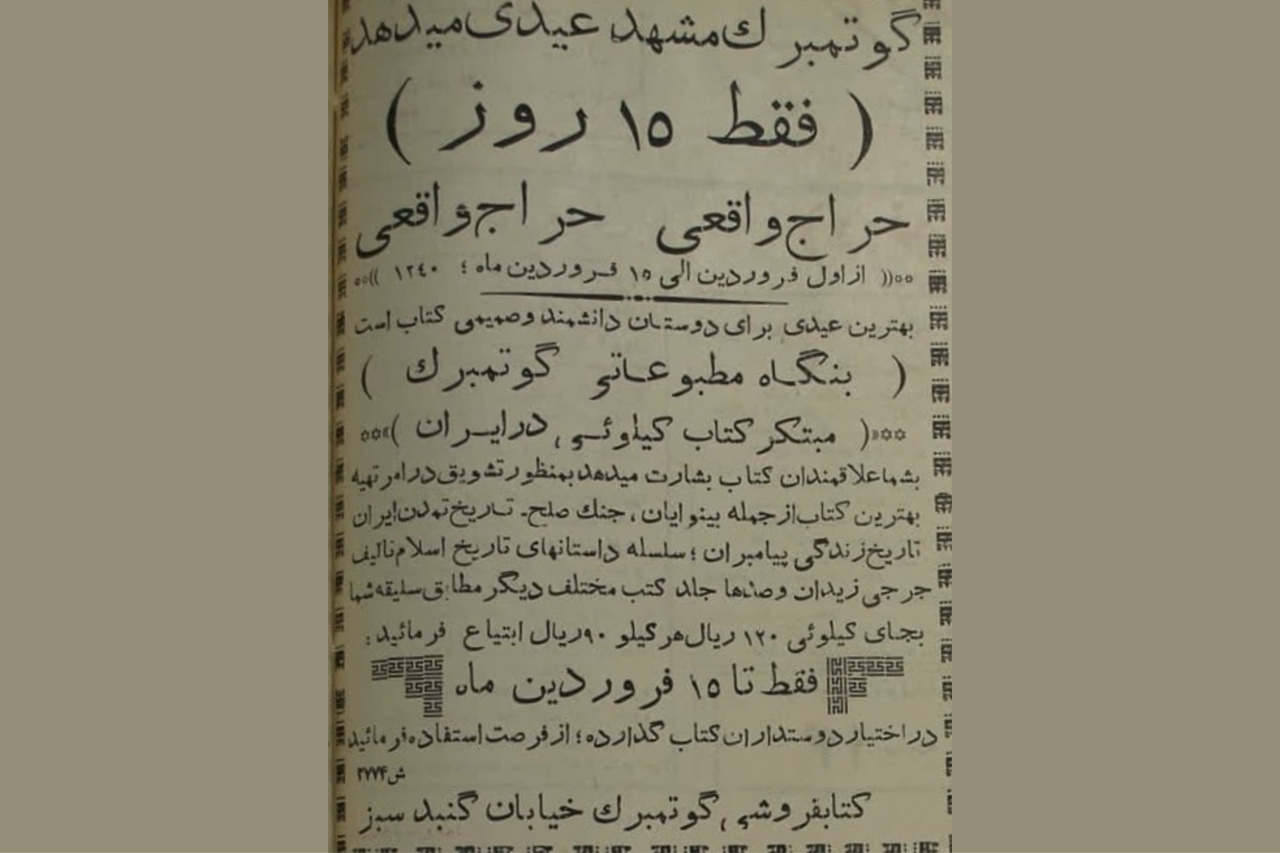 گوتمبرك مشهد عیدی میدهد
( فقط ١٥ روز )
حراج واقعی حراج واقعی
از اول فروردین الی ١٥ فروردین ماه ؛ ١٣٤٠
بهترین عیدی برای دوستان دانشمند وصمیمی کتاب است
( بنگاه مطبوعاتی گوتمبرك )
( مبتکر کتاب کیلوئی در ایران )
بشما علاقمندان کتاب بشارت میدهد بمنظور تشویق در امر تهیه
بهترین کتاب از جمله بینوایان ، جنك صلح - تاریخ تمدن ایران
تاریخ زندگی پیامبران ؛ سلسله داستانهای تاریخ اسلام تالیف
جرجی زیدان وصدها جلد کتب مختلف دیگر مطابق سلیقه شما
بجای کیلوئی ١٢٠ ریال هر کیلو ٩٠ ریال ابتیاع فرمائید :
فقط تا ١٥ فروردین ماه
در اختیار دوستداران کتاب گذارده ؛ از فرصت استفاده فرمائید
ش ٢٧٧۴
کتابفروشی گوتمبرك خیابان گنبد سبز